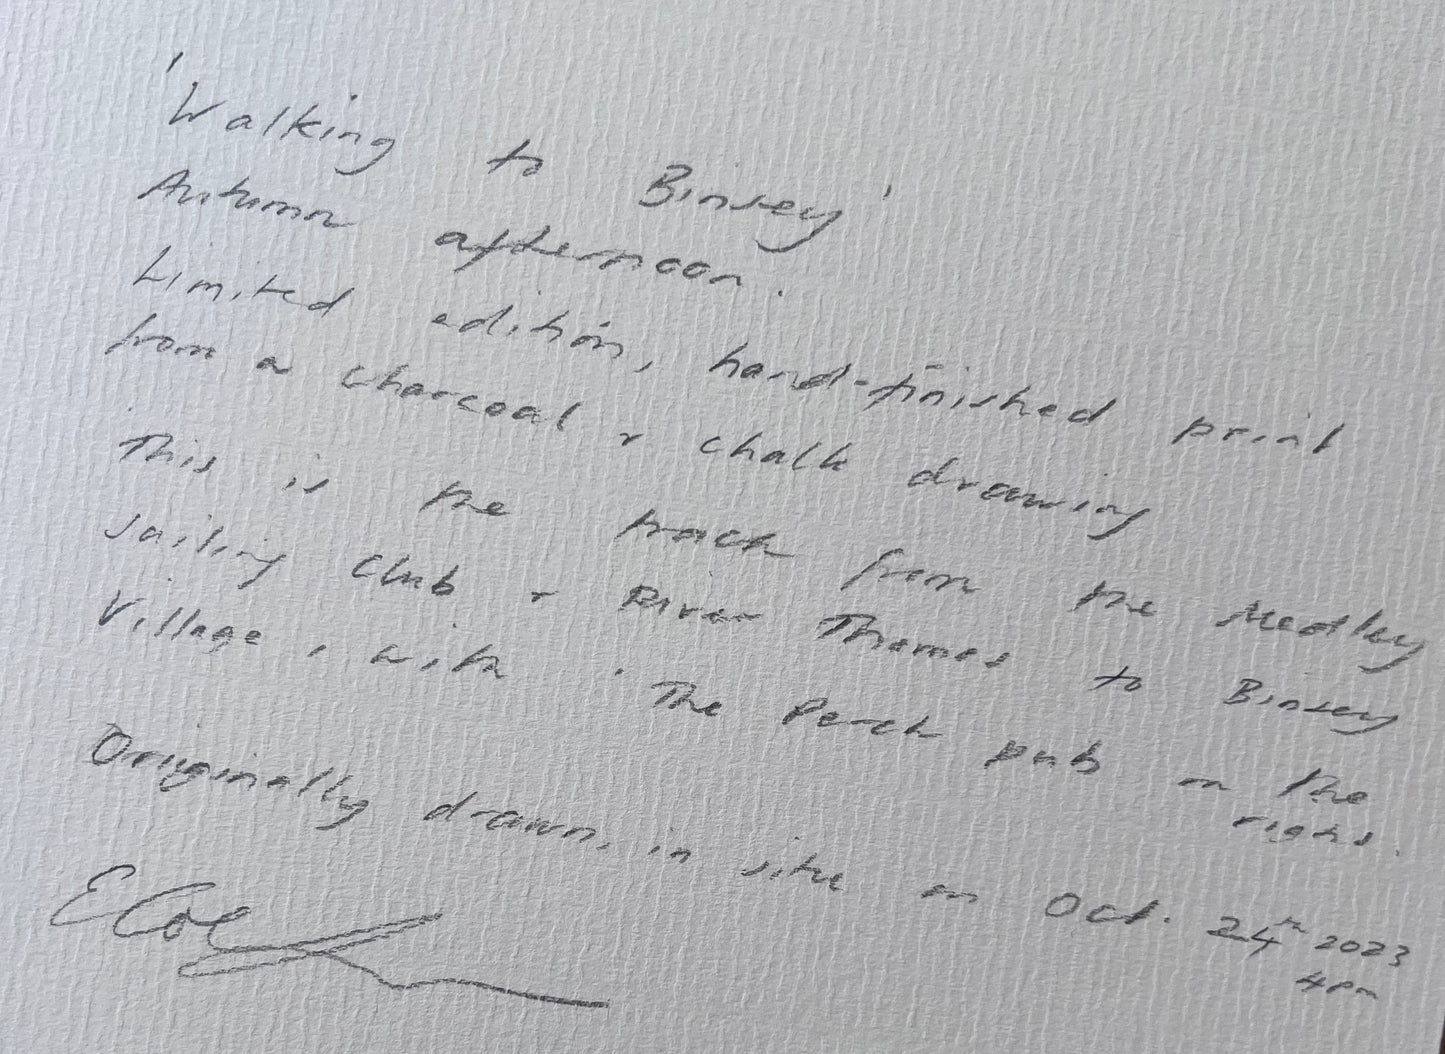 'Walking to Binsey'
Autumn afternoon.
Limited edition, hand-finished print
from a charcoal + chalk drawing
This is the track from the Medley
Sailing Club + River Thames to Binsey
Village, with 'The Perch pub on the
right.
Originally drawn, in situ on Oct. 24th 2023
4pm